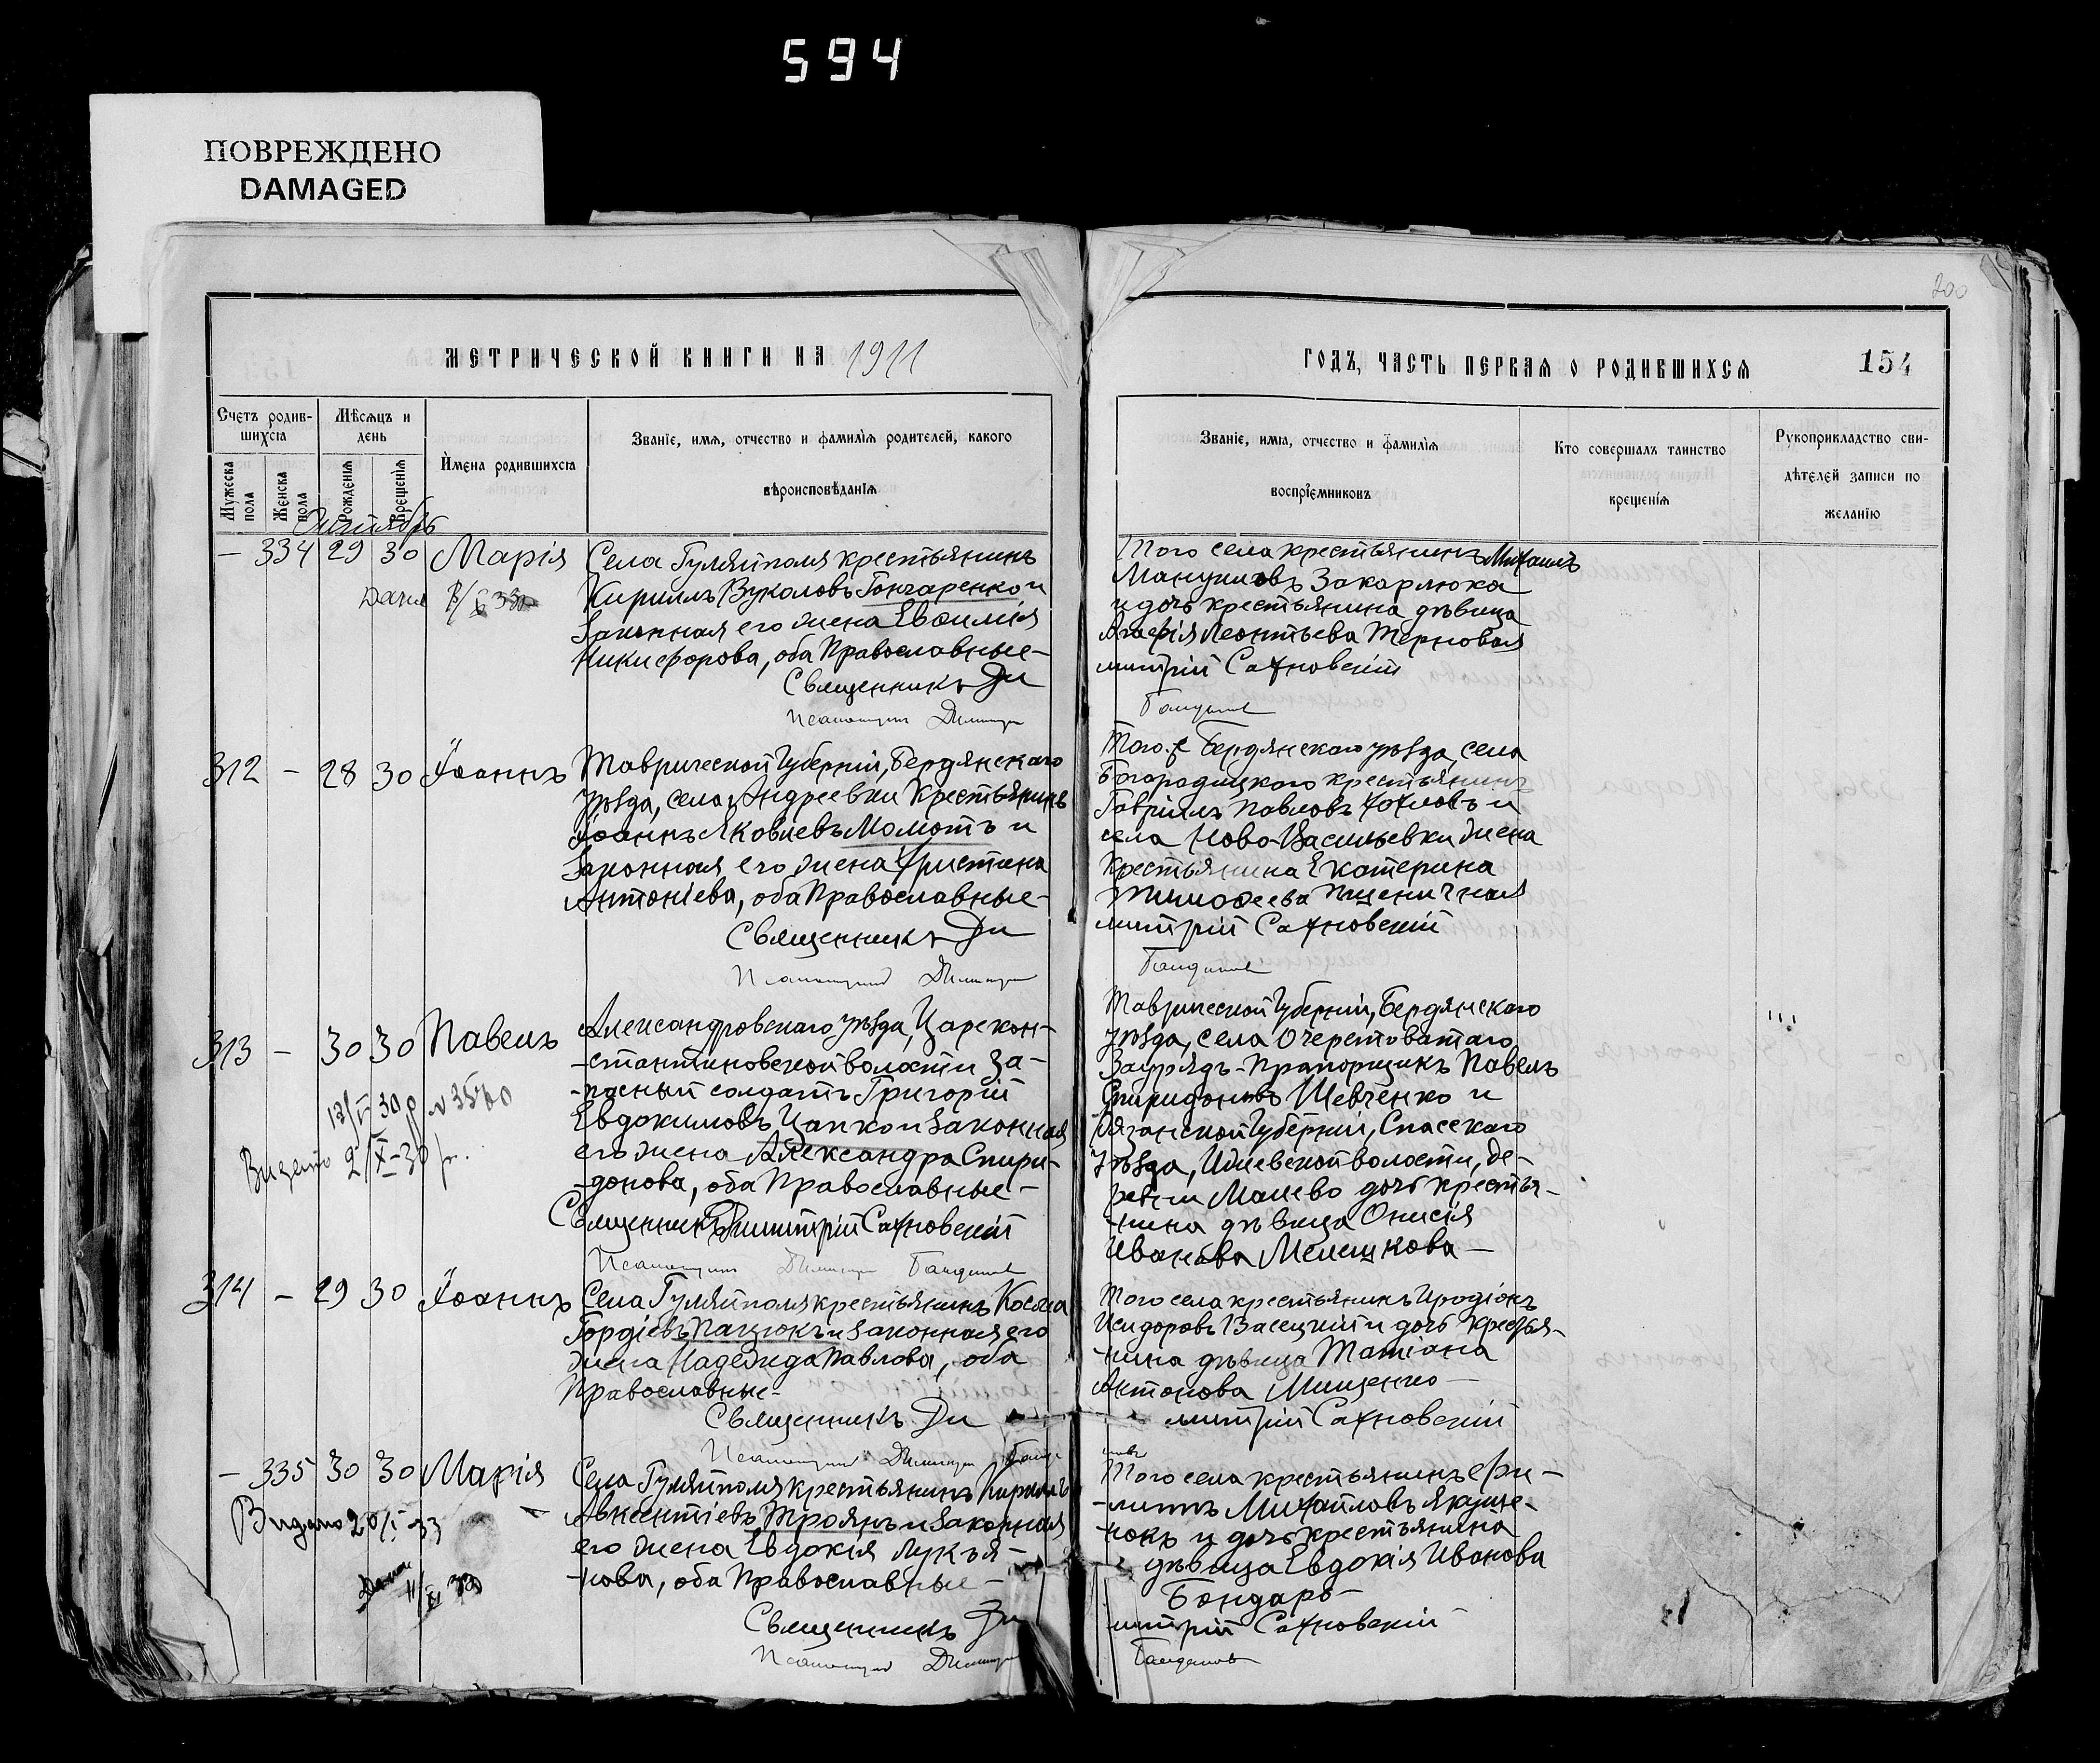 594
ПОВРЕЖДЕНО
DAMAGED
200
МЕТРИЧЕСКОЙ КНИГИ НА 1911
ГОДЪ, ЧАСТЬ ПЕРВАЯ О РОДИВШИХСЯ
154
Счетъ родив-
шихся
Мужеска пола
Женска пола
Мѣсяцъ и
день
Рожденія
Крещенія
Имена родившихся
Званіе, имя, отчество и фамилія родителей, какого
вѣроисповѣданія
Званіе, имя, отчество и фамилія
воспріемниковъ
Кто совершалъ таинство
крещенія
Рукоприкладство сви-
дѣтелей записи по
желанію
Октябрь
– 334 29 30 Марія
Села Гуляйполя крестьянинъ
Кириллъ Вуколовъ Гончаренко и
законная его жена Евѳимія
Никифорова, оба Православные –
Священникъ Ди
Псаломщикъ Димитрій
Того села крестьянинъ Михаилъ
Мануиловъ Закарлюка
и дочь крестьянина дѣвица
Агафія Леонтьева Терновая
митрій Сахновскій
312 – 28 30 Іоаннъ
Таврической Губерніи, Бердянскаго
уѣзда, села Андреевки крестьянинъ
Іоаннъ Яковлевъ Момотъ и
законная его жена Христина
Антоніева, оба Православные –
Священникъ Ди
Псаломщикъ Димитрій
Того-же Бердянскаго уѣзда, села
Богородицкаго крестьянинъ
Гавріилъ Павловъ Хохловъ и
села Ново-Васильевки жена
крестьянина Екатерина
Тимоѳеева Пшеничная
митрій Сахновскій
313 – 30 30 Павелъ
30 р. № 3560
Видано 2/IX-30 р.
Александровскаго уѣзда, Царекон-
-стантиновской волости за-
-пасный солдатъ Григорій
Евдокимовъ Цапко и законная
его жена Александра Спири-
-донова, оба Православные –
Священникъ Димитрій Сахновскій
Псаломщикъ Димитрій
Таврической Губерніи, Бердянскаго
уѣзда, села Очеретоватаго
Заурядъ-Прапорщикъ Павелъ
Спиридоновъ Шевченко и
Рязанской Губерніи, Спасскаго
уѣзда, волости, де-
ревни дочь крестья-
-нина дѣвица Онисія
Иванова Мелешкова –
314 – 29 30 Іоаннъ
Села Гуляйполя крестьянинъ Косма
Гордіевъ Пацюкъ и законная его
жена Надежда Павлова, оба
Православные –
Священникъ Ди
Псаломщикъ Димитрій
Того села крестьянинъ Иродіонъ
Исидоровъ Васецкій и дочь крестья-
-нина дѣвица Татіана
Антонова Мищенко –
митрій Сахновскій
– 335 30 30 Марія
Видано 20/I-33
Села Гуляйполя крестьянинъ Кириллъ
Авксентіевъ Троянъ и законная
его жена Евдокія Лукья-
-нова, оба Православные –
Священникъ Ди
Псаломщикъ Димитрій
Того села крестьянинъ Фи-
-липпъ Михайловъ Якуше-
-нокъ и дочь крестьянина
дѣвица Евдокія Иванова
Бондарь
митрій Сахновскій